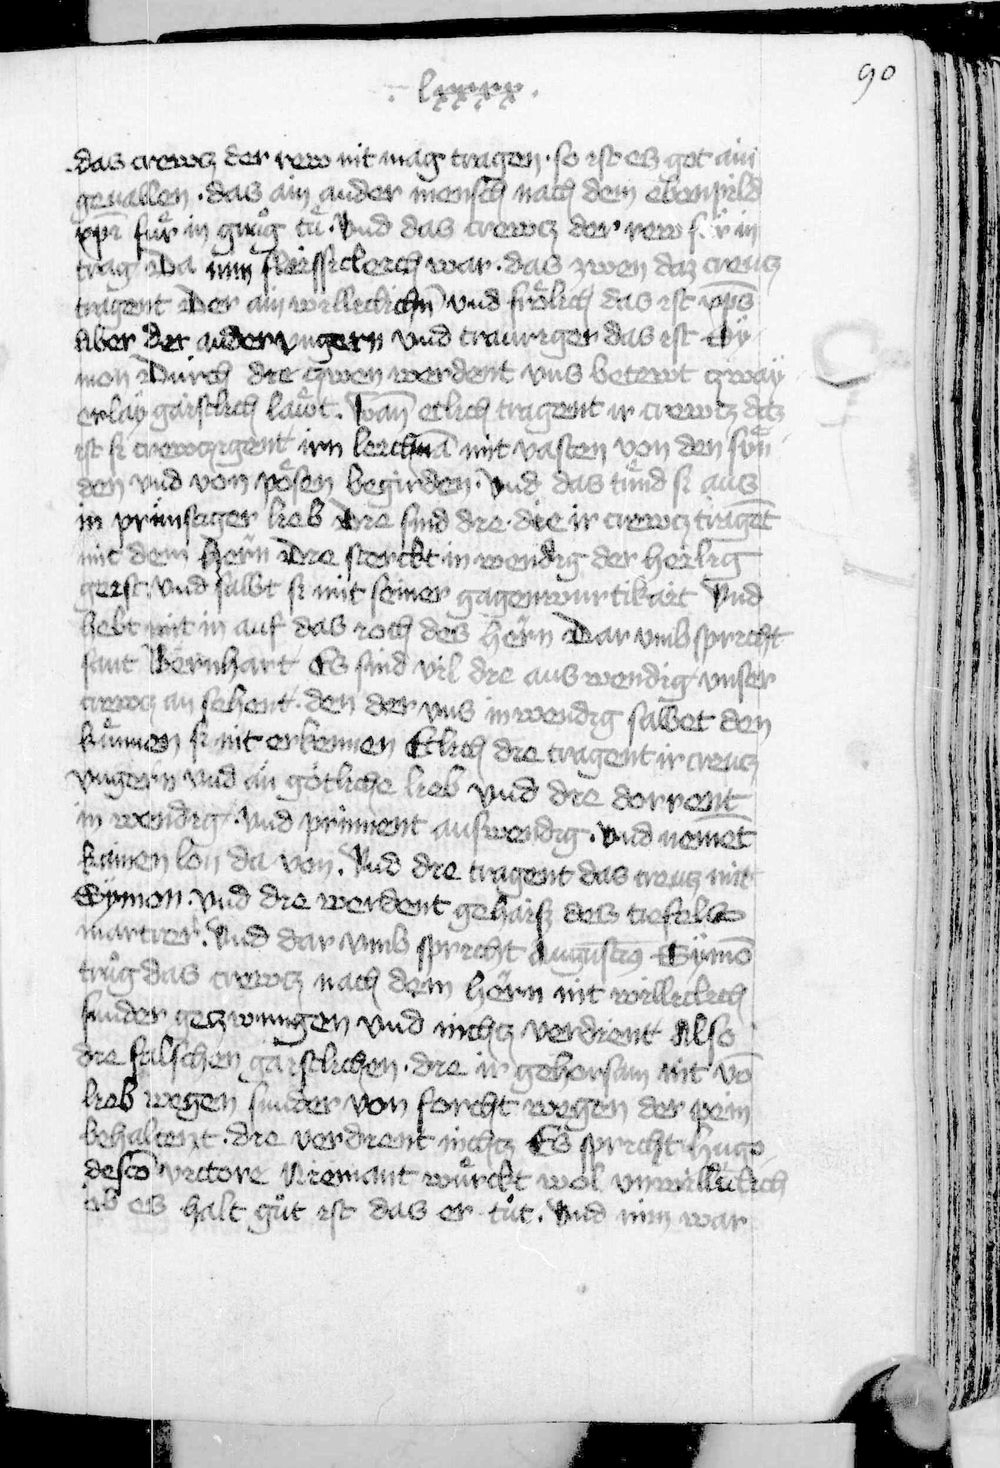 90
· lxxxx ·
das crewcz der rew nit mag tragen · so ist es got ain
geuallen · das ain ander mensch nach dem ebenpild
xpī fuͤr in gnuͦg tuͤ · Vnd das crewcz der rew fuͤr in
trag Da nim fleissiclich war · das zwen daz creucz
tragent Der ain willeclichn̄ vnd froͤlich das ist xp̄s
Aber der ander vngern vnd trauriger das ist Sy
mon Durch die zwen werdent vns betewt czway
erlay gaistlich laẅt . Wan̄ etlich tragent ir crewcz daz
ist si crewczigent irn leichnā mit vasten von den sün
den vnd von poͤsen begirden · Vnd das tuͤnd si aus
in prinstiger lieb Die sind die · die ir crewcz tragēt
mit dem hern̄ Die sterckt in wendig der heilig
geist · vnd salbt si mit seiner gagenwurtikait Vnd
hebt mit in auf das ioch des hern̄ Dar vmb spricht
sant Bernhart Es sind vil die aus wendig vnser
crewcz an sehent · den der vns in wendig salbet den
kuͤnnen si nit erkennen Etlich die tragent ir creucz
vngern vnd an goͤtliche lieb vnd die dorrent
in wendig · vnd prinnent auswendig · vnd nemēt
kainen lon da von . Vnd die tragent das creucz mit
Symon · vnd die werdent gehaisz des tiefels
martrer . Vnd dar vmb spricht Augustiꝰ Symō
truͦg das crewcz nach dem hern̄ nit willeclich
sunder geczwungen vnd nichcz verdient Also
die falschen gaistlichen · die ir gehorsam nit vō
lieb wegen sunder von forcht wegen der pein
behaltent · die verdient nichcz Es spricht hugo
de scō victore Niemant wuͤrckt wol vnwilleclich
ob es halt guͦt ist das er tuͦt . Vnd nim war